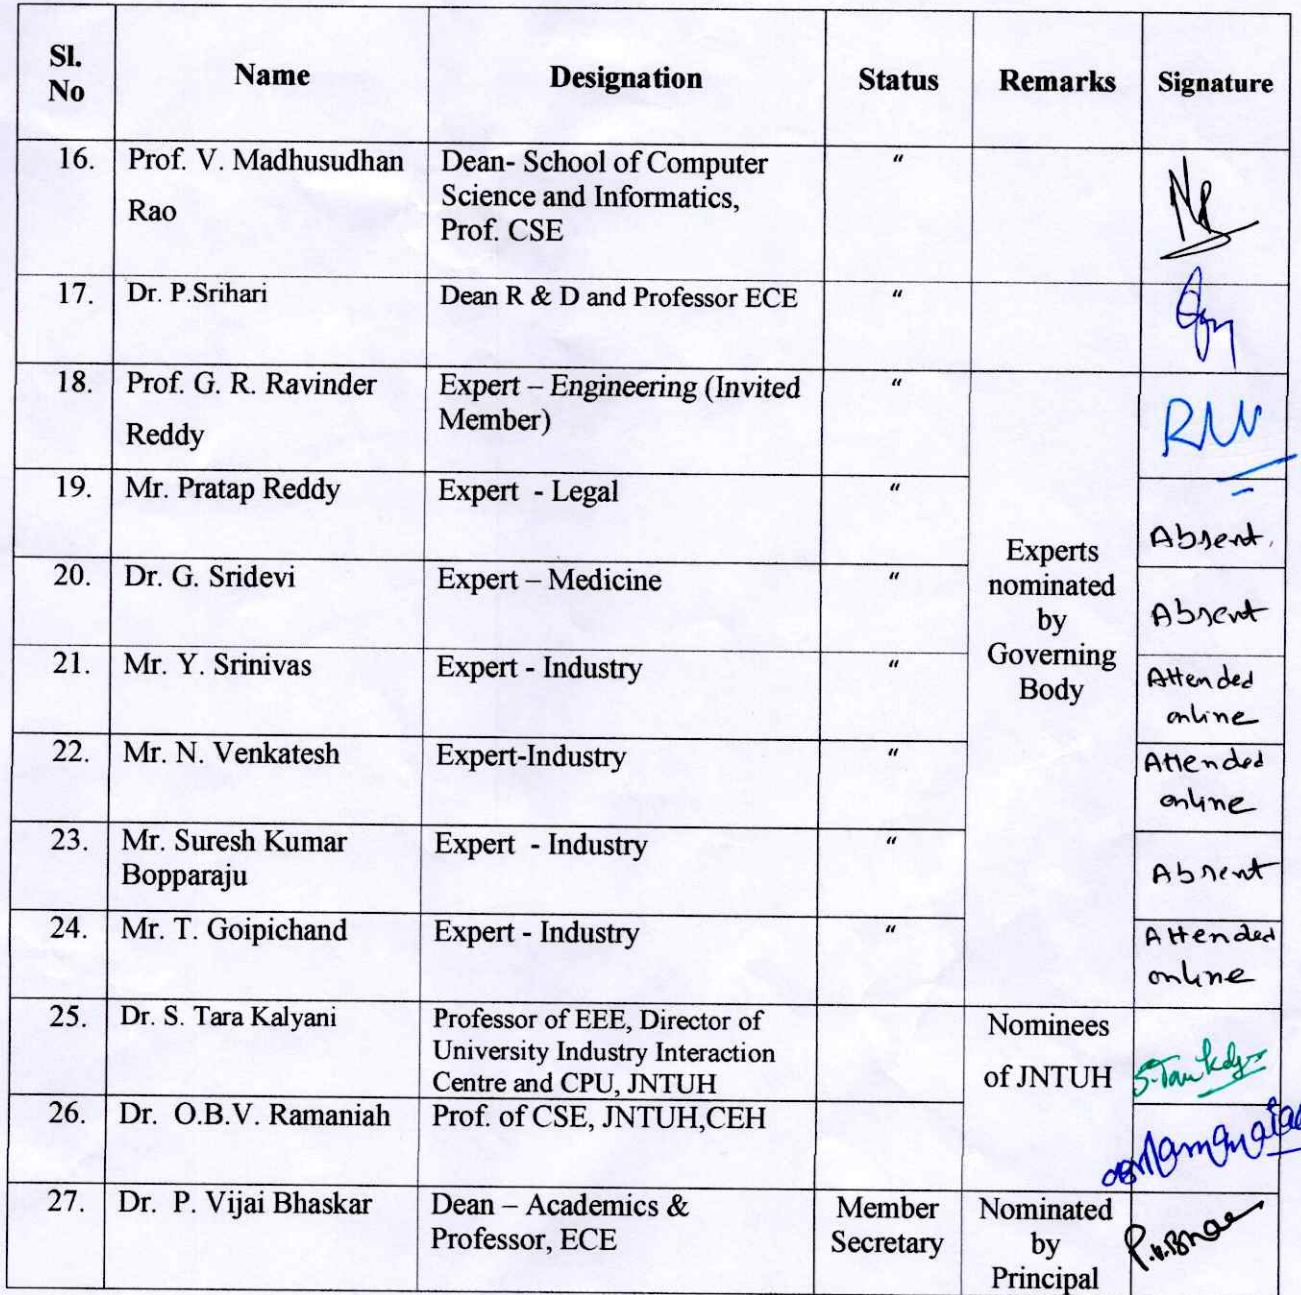 Sl. No Name Designation Status Remarks Signature
16. Prof. V. Madhusudhan Rao Dean- School of Computer Science and Informatics, Prof. CSE "
17. Dr. P.Srihari Dean R & D and Professor ECE "
18. Prof. G. R. Ravinder Reddy Expert – Engineering (Invited Member) " Experts nominated by Governing Body
19. Mr. Pratap Reddy Expert - Legal " Absent.
20. Dr. G. Sridevi Expert – Medicine " Absent
21. Mr. Y. Srinivas Expert - Industry " Attended online
22. Mr. N. Venkatesh Expert-Industry " Attended online
23. Mr. Suresh Kumar Bopparaju Expert - Industry " Absent
24. Mr. T. Goipichand Expert - Industry " Attended online
25. Dr. S. Tara Kalyani Professor of EEE, Director of University Industry Interaction Centre and CPU, JNTUH Nominees of JNTUH
26. Dr. O.B.V. Ramaniah Prof. of CSE, JNTUH,CEH
27. Dr. P. Vijai Bhaskar Dean – Academics & Professor, ECE Member Secretary Nominated by Principal